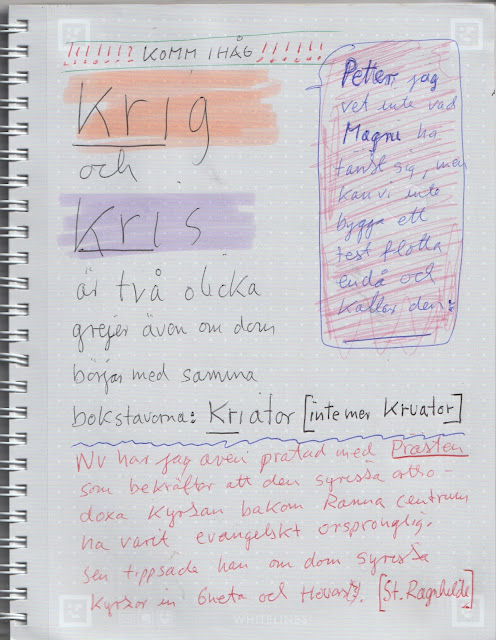 !!!!!!? KOMM IHÅG !!!!!!
Krig
och
Kris
är två olicka
grejer även om dom
börjar med samma
bokstavorna: Kriator [inte mer Kruator]
Petter, jag
vet inte vad
Magni ha
tänkt sig, men
kan vi inte
bygga ett
test flotta
endå och
kallar den:
Nu har jag även pratad med Prästen
som bekräftar att den syrissa ortho-
doxa Kyrkan bakom Ranna centrum
ha varit evangelskt orspronglig.
Sen tippsade han om dom syrissa
Kyrkor in Gneta och Hovas. [St. Ragnhilde]
WHITELINES